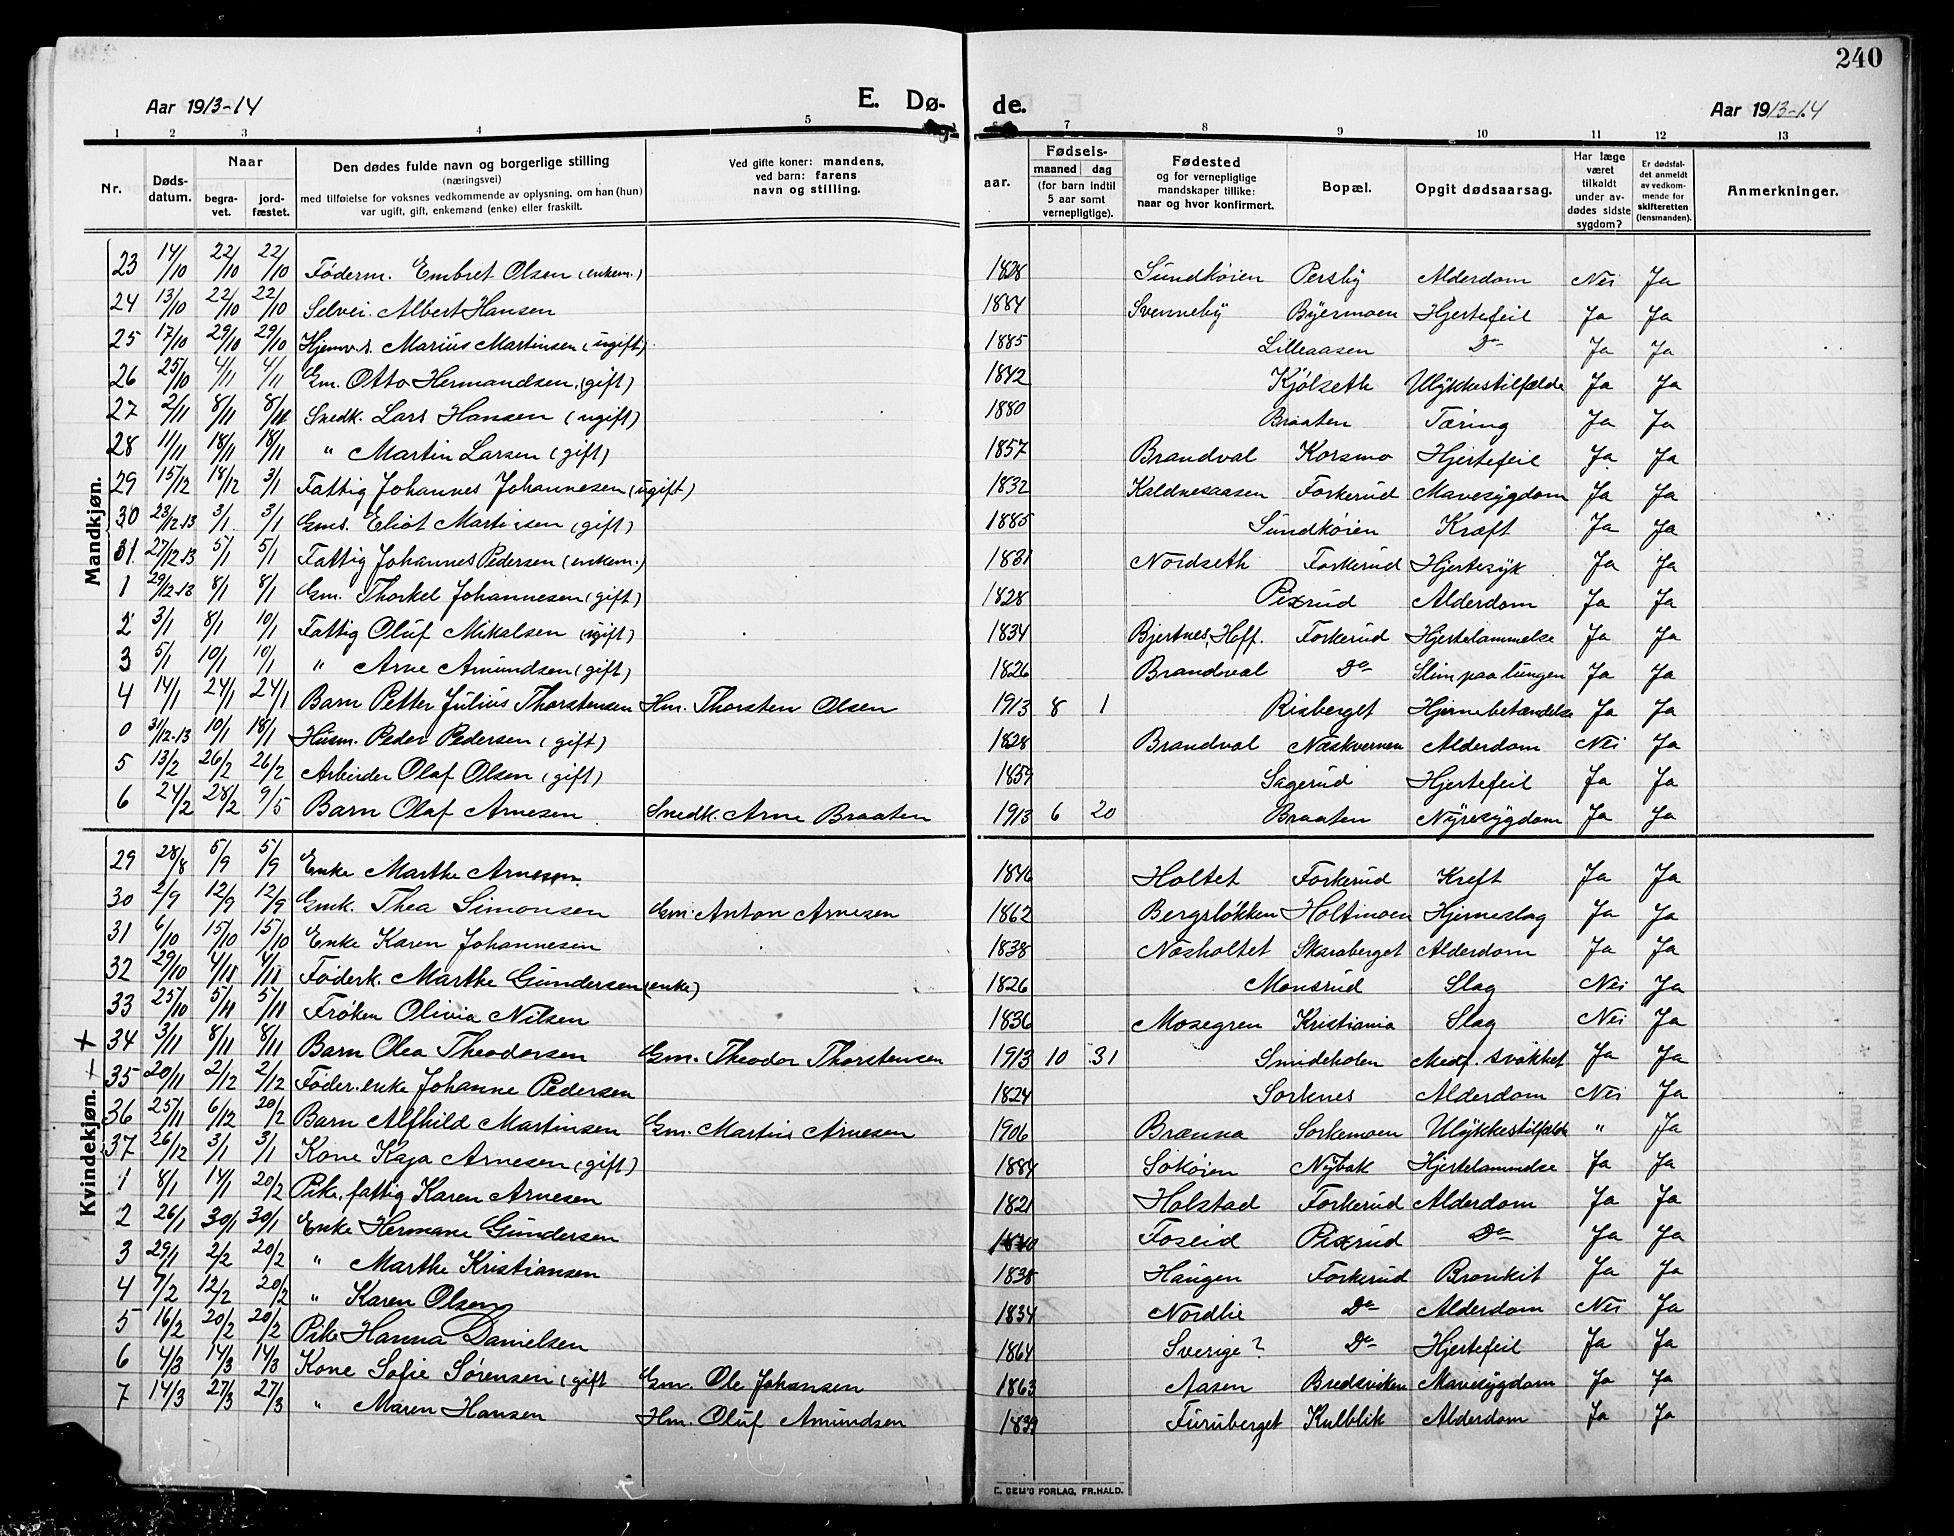 240
Aar 1913-14 E. Dø- de. Aar 1913-14
1 2 3 4 5 7 8 9 10 11 12 13
Nr. Dødsdatum. Naar begravet. jordfæstet. Den dødes fulde navn og borgerlige stilling (næringsvei) med tilføielse for voksnes vedkommende av oplysning, om han (hun) var ugift, gift, enkemand (enke) eller fraskilt. Ved gifte koner: mandens, ved barn: farens navn og stilling. aar. Fødsels- maaned dag (for barn indtil 5 aar samt vernepligtige). Fødested og for vernepligtige mandskaper tillike: naar og hvor konfirmert. Bopæl. Opgit dødsaarsag. Har læge været tilkaldt under avdødes sidste sygdom? Er dødsfaldet anmeldt av vedkommende for skifteretten (lensmanden). Anmerkninger.
Mandkjøn.
23 14/10 22/10 22/10 Føderm. Embret Olsen (enkem.) 1828 Sundkøien Persby Alderdom Nei Ja
24 13/10 22/10 22/10 Selvei. Albert Hansen 1884 Svenneby Byermoen Hjertefeil Ja Ja
25 17/10 29/10 29/10 Hjemv.s. Marius Martinsen (ugift) 1885 Lilleaasen Do Ja Ja
26 25/10 4/11 4/11 Gm. Otto Hermandsen (gift) 1842 Kjølseth Ulykkestilfælde Ja Ja
27 2/11 8/11 8/11 Snedk. Lars Hansen (ugift) 1880 Braaten Tæring Ja Ja
28 11/11 18/11 18/11 " Martin Larsen (gift) 1857 Brandval Korsmo Hjertefeil Ja Ja
29 15/12 18/12 3/1 Fattig Johannes Johannesen (ugift) 1832 Kaldnesaasen Forkerud Mavesygdom Ja Ja
30 23/12-13 3/1 3/1 Gms. Eliot Martinsen (gift) 1885 Sundkøien Kræft Ja Ja
31 27/12-13 5/1 5/1 Fattig Johannes Pedersen (enkem.) 1831 Nordseth Forkerud Hjertesyk Ja Ja
1 29/12-13 8/1 8/1 Gm. Thorkel Johannesen (gift) 1828 Pixrud Alderdom Ja Ja
2 3/1 8/1 10/1 Fattig Oluf Mikalsen (ugift) 1834 Bjertnes, Hoff. Forkerud Hjertelammelse Ja Ja
3 5/1 10/1 10/1 " Arne Amundsen (gift) 1826 Brandval Do Slim paa lungen Ja Ja
4 14/1 24/1 24/1 Barn Petter Julius Thorstensen Hm. Thorsten Olsen 1913 8 1 Risberget Hjernebetændelse Ja Ja
0 31/12-13 10/1 18/1 Husm. Peder Pedersen (gift) 1828 Brandval Næskvernen Alderdom Nei Ja
5 13/2 26/2 26/2 Arbeider Olaf Olsen (gift) 1859 Sagerud Hjertefeil Ja Ja
6 24/2 28/2 9/5 Barn Olaf Arnesen Snedk. Arne Braaten 1913 6 20 Braaten Nyresygdom Ja Ja
Kvindekjøn.
29 28/8 5/9 5/9 Enke Marthe Arnesen 1846 Holtet Forkerud Kreft Ja Ja
30 2/9 12/9 12/9 Gmk. Thea Simonsen Gm. Anton Arnesen 1862 Bergsløkken Holtmoen Hjerneslag Ja Ja
31 6/10 15/10 15/10 Enke Karen Johannesen 1838 Næsholtet Skaraberget Alderdom Ja Ja
32 29/10 4/11 4/11 Føderk. Marthe Gundersen (enke) 1826 Monsrud Slag Nei Ja
33 25/10 5/11 5/11 Frøken Olivia Nilsen 1836 Mosegren Kristiania Slag Nei Ja
+ 34 3/11 8/11 8/11 Barn Olea Theodorsen Gm. Theodor Thorstensen 1913 10 31 Smideholen Medf. svakhet Ja Ja
35 20/11 2/12 2/12 Føder.enke Johanne Pedersen 1824 Sorknes Alderdom Nei Ja
36 25/11 6/12 20/2 Barn Alfhild Martinsen Gm. Martin Arnesen 1906 Brænna Sorkemoen Ulykkestilfælde " Ja
37 26/12 3/1 3/1 Kone Kaja Arnesen (gift) 1884 Søkøien Nybak Hjertelammelse Ja Ja
1 8/1 14/1 20/2 Pike, fattig Karen Arnesen 1821 Holstad Forkerud Alderdom Ja Ja
2 26/1 30/1 30/1 Enke Hermane Gundersen 1840 Foseid Pixrud Do Ja Ja
3 29/1 2/2 20/2 " Marthe Kristiansen 1838 Haugen Forkerud Bronkit Ja Ja
4 7/2 12/2 20/2 " Karen Olsen 1834 Nordlie Do Alderdom Nei Ja
5 16/2 20/2 20/2 Pike Hanna Danielsen 1864 Sverige? Do Hjertefeil Ja Ja
6 4/3 14/3 14/3 Kone Sofie Sørensen (gift Gm. Ole Johansen 1863 Aasen Bredsviken Mavesygdom Ja Ja
7 14/3 27/3 27/3 " Maren Hansen Hm. Oluf Amundsen 1839 Furuberget Kulblik Alderdom Ja Ja
FORLAG, FR.HALD.